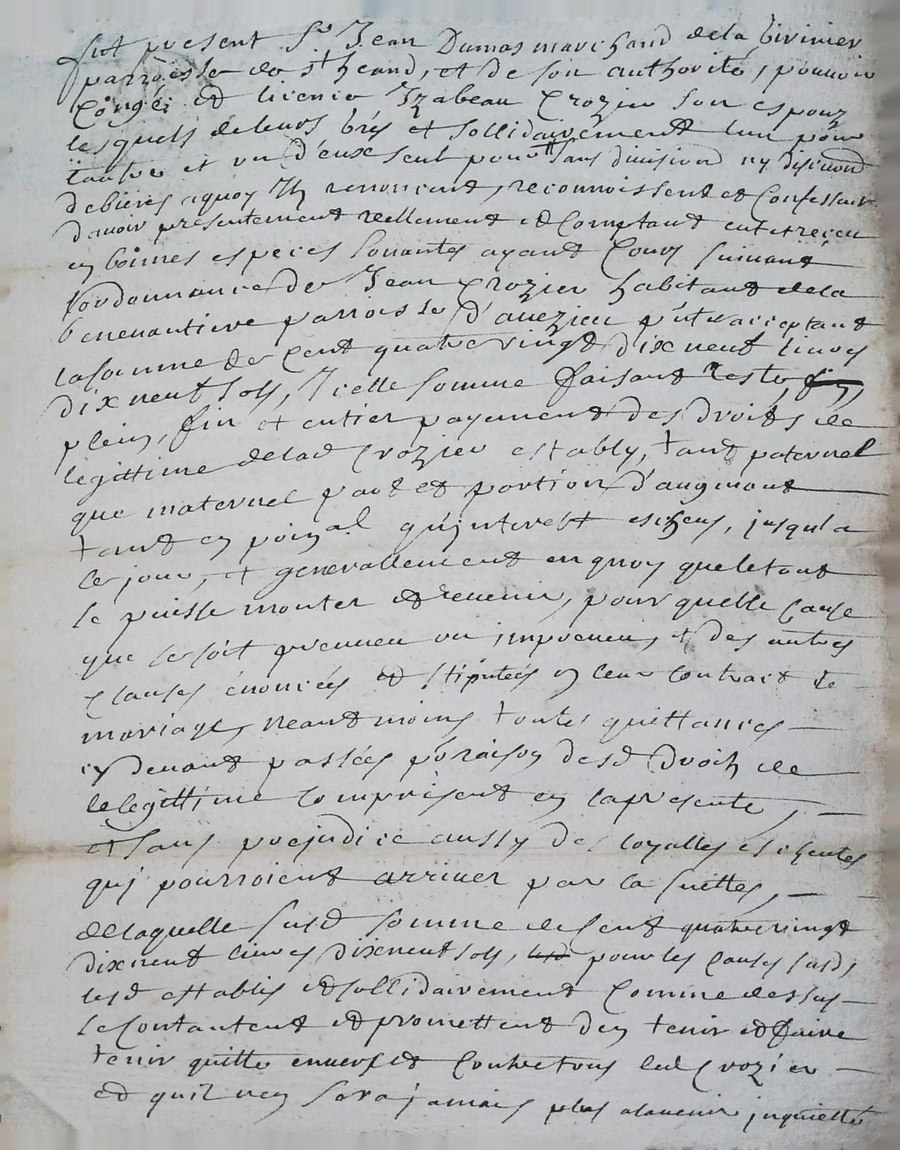 fut present Sr Jean Dumas marchand de la Givinier
parroisse de st heand, et de son authorité, pouvoir
Congéi et licence Izabeau Crozier son espouz
lesquels de leurs grés et sollidairement lun pour
lautre et un d'eux seul pour le tt sans division ny discution
de biens aquoy Ilz renoncent, reconnoissent et Confessent
d'avoir présentement réellement et Comptant eut et receu
en bonnes especes sonantes ayant Cours suivant
l'ordonnance de Jean Crozier habitant de la
benenantiere parroisse d'avezieu p̃nt et acceptant
la somme de Cent quatre vingt dix neuf livres
dix neuf solz, Icelle somme faisant reste,
plein, fin et entier payement des droits de
legittime de lad Crozier establÿ, tant paternel
que maternel part et portion d'augment
tant en p̃oinal qu'jnterest escheus, jusqu'a
ce jour, et generallement en quoy que le tout
le puisse monter et revenir, pour quelle Cause
que se soit preveueu ou impreveuu, et des autres
Clauses énoncées et stipulées en leur Contrait de
mariage, neant moins toutes quittances
cy devant passées p̃ raison desd droits de
legittime Comprisent en la presente,
et sans prejudice aussy des loyalles escheutes
quj pourroient arriver par la suittes,
de laquelle susd somme de Cent quatre vingt
dixneuf livres dixneuf solz, pour les Causes susd,
lesd establis et sollidairement Comme dessus
se Contantent et promettent d'en tenir et faire
tenir quitte envers et Contre tous led Crozier
et quil nen sera jamais plus alavenir jnquietté